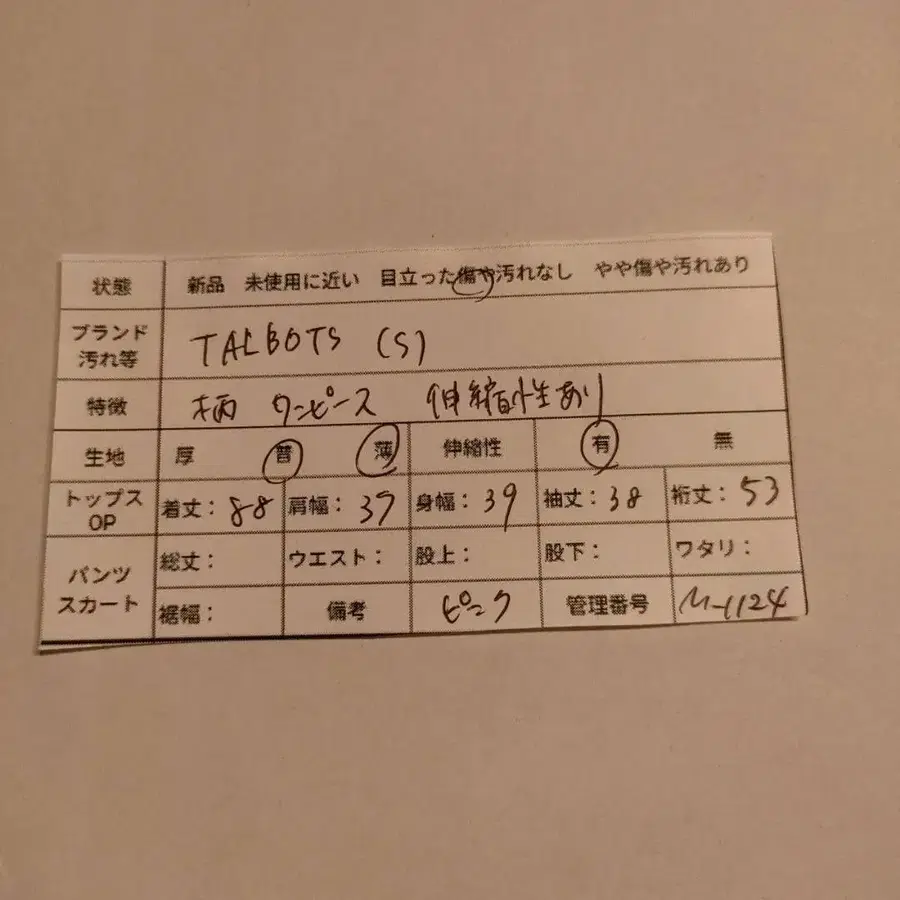 状態 新品 未使用に近い 目立った傷や汚れなし やや傷や汚れあり
ブランド
汚れ等 TALBOTS (S)
特徴 柄 ワンピース 伸縮性あり
生地 厚 普 薄 伸縮性 有 無
トップス
OP 着丈：88 肩幅：37 身幅：39 袖丈：38 裄丈：53
パンツ
スカート 総丈： ウエスト： 股上： 股下： ワタリ：
裾幅： 備考 ピンク 管理番号 M-1124